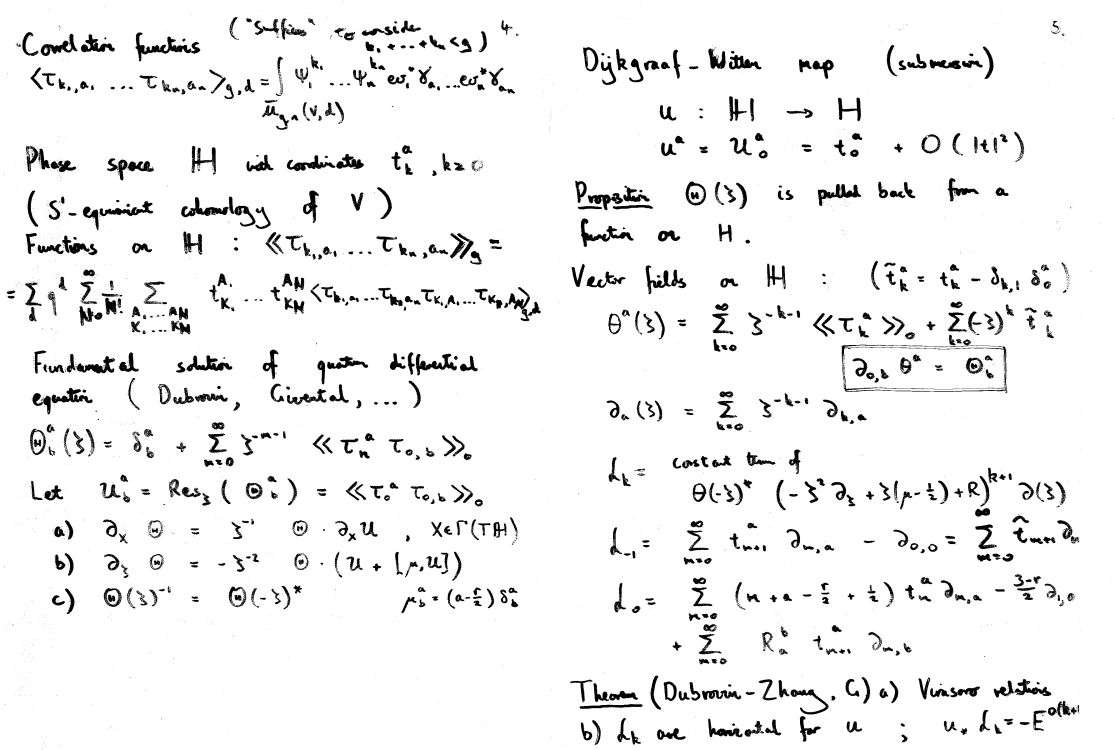 4.
Correlation functions ("Suffices" to consider k₁+...+kₙ<g)
⟨τ_{k₁,a₁} ... τ_{kₙ,aₙ}⟩_{g,d} = ∫_{M̄_{g,n}(V,d)} ψ₁^{k₁} ... ψₙ^{kₙ} ev₁*γ_{a₁} ... evₙ*γ_{aₙ}
Phase space ℍ with coordinates t_k^a, k≥0
(S¹-equivariant cohomology of V)
Functions on ℍ : ⟪τ_{k₁,a₁} ... τ_{kₙ,aₙ}⟫_g =
= Σ_d q^d Σ_{N=0}^∞ 1/N! Σ_{A₁...A_N K₁...K_N} t_{K₁}^{A₁} ... t_{K_N}^{A_N} ⟨τ_{k₁,a₁} ... τ_{kₙ,aₙ} τ_{K₁,A₁} ... τ_{K_N,A_N}⟩_{g,d}
Fundamental solution of quantum differential
equation (Dubrovin, Givental, ...)
Θ_b^a(ζ) = δ_b^a + Σ_{n=0}^∞ ζ^{-n-1} ⟪τ_n^a τ_{0,b}⟫₀
Let U_b^a = Res_ζ (Θ_b^a) = ⟪τ_0^a τ_{0,b}⟫₀
a) ∂_X Θ = ζ^{-1} Θ · ∂_X U , X∈Γ(Tℍ)
b) ∂_ζ Θ = -ζ^{-2} Θ · (U + [μ,U])
c) Θ(ζ)^{-1} = Θ(-ζ)* μ_b^a = (a-r/2) δ_b^a
5.
Dijkgraaf-Witten map (submersion)
u : ℍ → H
u^a = U_0^a = t_0^a + O(|t|²)
Proposition Θ(ζ) is pulled back from a
function on H.
Vector fields on ℍ : (t̃_k^a = t_k^a - δ_{k,1} δ_0^a)
θ^a(ζ) = Σ_{k=0}^∞ ζ^{-k-1} ⟪τ_k^a⟫₀ + Σ_{k=0}^∞ (-ζ)^k t̃_k^a
∂_{0,b} θ^a = Θ_b^a
∂_a(ζ) = Σ_{k=0}^∞ ζ^{-k-1} ∂_{k,a}
L_k = constant term of
θ(-ζ)* (-ζ²∂_ζ + ζ(μ-½) + R)^{k+1} ∂(ζ)
L_{-1} = Σ_{m=0}^∞ t_{m+1}^a ∂_{m,a} - ∂_{0,0} = Σ_{m=0}^∞ t̃_{m+1} ∂_m
L_0 = Σ_{m=0}^∞ (m + a - r/2 + ½) t_m^a ∂_{m,a} - (3-r)/2 ∂_{1,0}
+ Σ_{m=0}^∞ R_a^b t_{m+1}^a ∂_{m,b}
Theorem (Dubrovin-Zhang, G) a) Virasoro relations
b) L_k are horizontal for u ; u_* L_k = -E^{∘(k+1